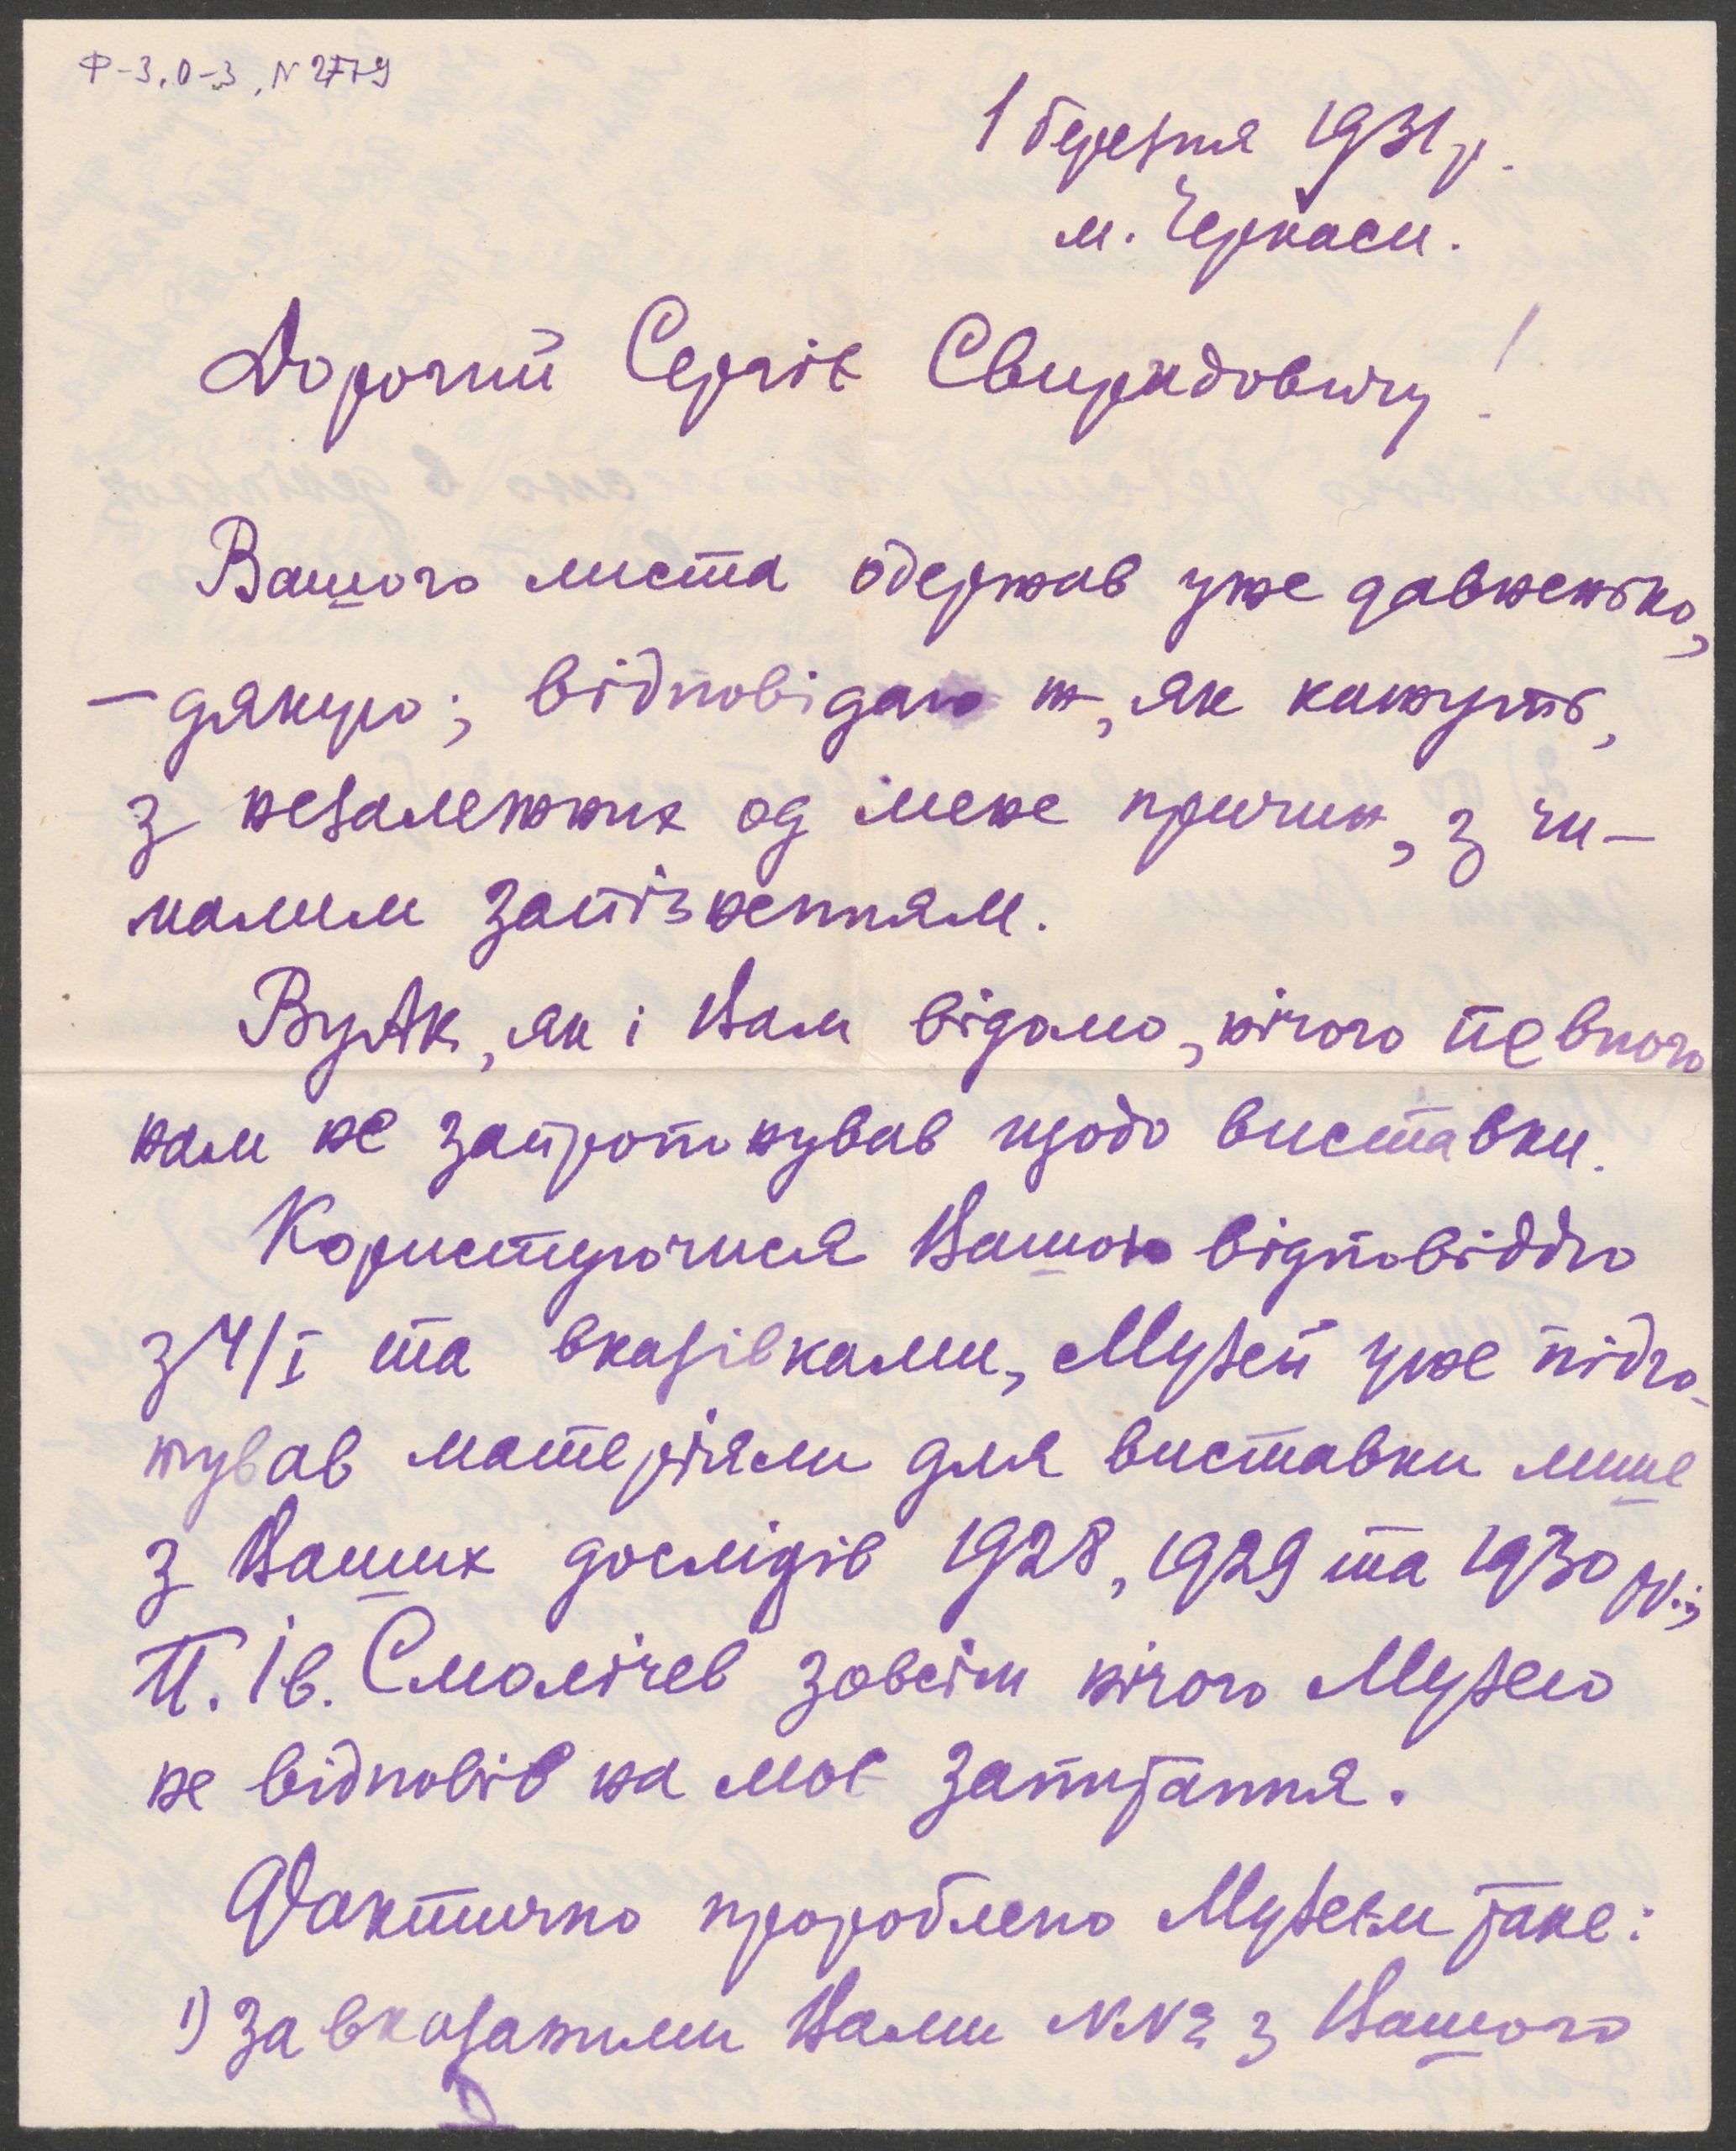 Ф-3, О-3, N 2779
1 березня 1931 р.
м. Черкаси.
Дорогий Сергіє Свиридовичу!
Вашого листа одержав уже давненько,
– дякую; відповідаю ж, як кажуть,
з незалежних од мене причин, з чи–
малим запізненням.
ВУАК, як і Вам відомо, нічого певного
нам не запропонував щодо виставки.
Користуючися Вашою відповіддю
з 4/I та вказівками, Музей уже підго–
тував матеріяли для виставки лише
з Ваших дослідів 1928, 1929 та 1930 рр.;
П. Ів. Смолічев зовсім нічого Музею
не відповів на моє запитання.
Фактично пророблено Музеєм таке:
1) За вказаними Вами №№ з Вашого